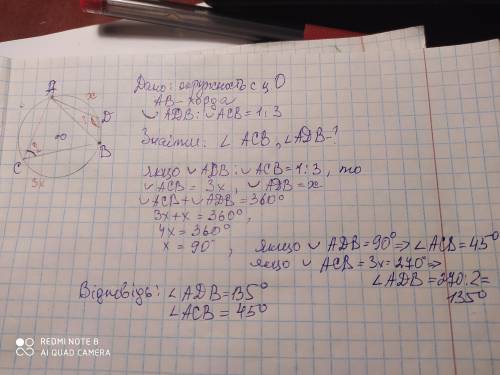 Дано: окружность с ц. О
АВ - хорда
◡ ADB : ◡ ACB = 1 : 3
Знайти: ∠ ACB, ∠ADB - ?
якщо ◡ ADB : ◡ ACB = 1 : 3, то
◡ ACB = 3x, ◡ ADB = x
◡ ACB + ◡ ADB = 360°
3x + x = 360°,
4x = 360°
x = 90°, якщо ◡ ADB = 90° ⇒ ∠ ACB = 45°
якщо ◡ ACB = 3x = 270° ⇒
∠ ADB = 270 : 2 =
135°
Відповідь: ∠ADB = 135°
∠ACB = 45°
A
x
D
B
O
C
3x
REDMI NOTE 8
AI QUAD CAMERA